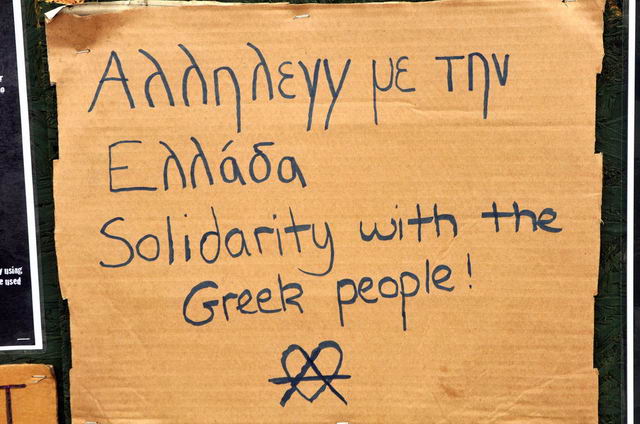 Αλληλεγγ με την
Ελλάδα
Solidarity with the
Greek people!
y using
e used